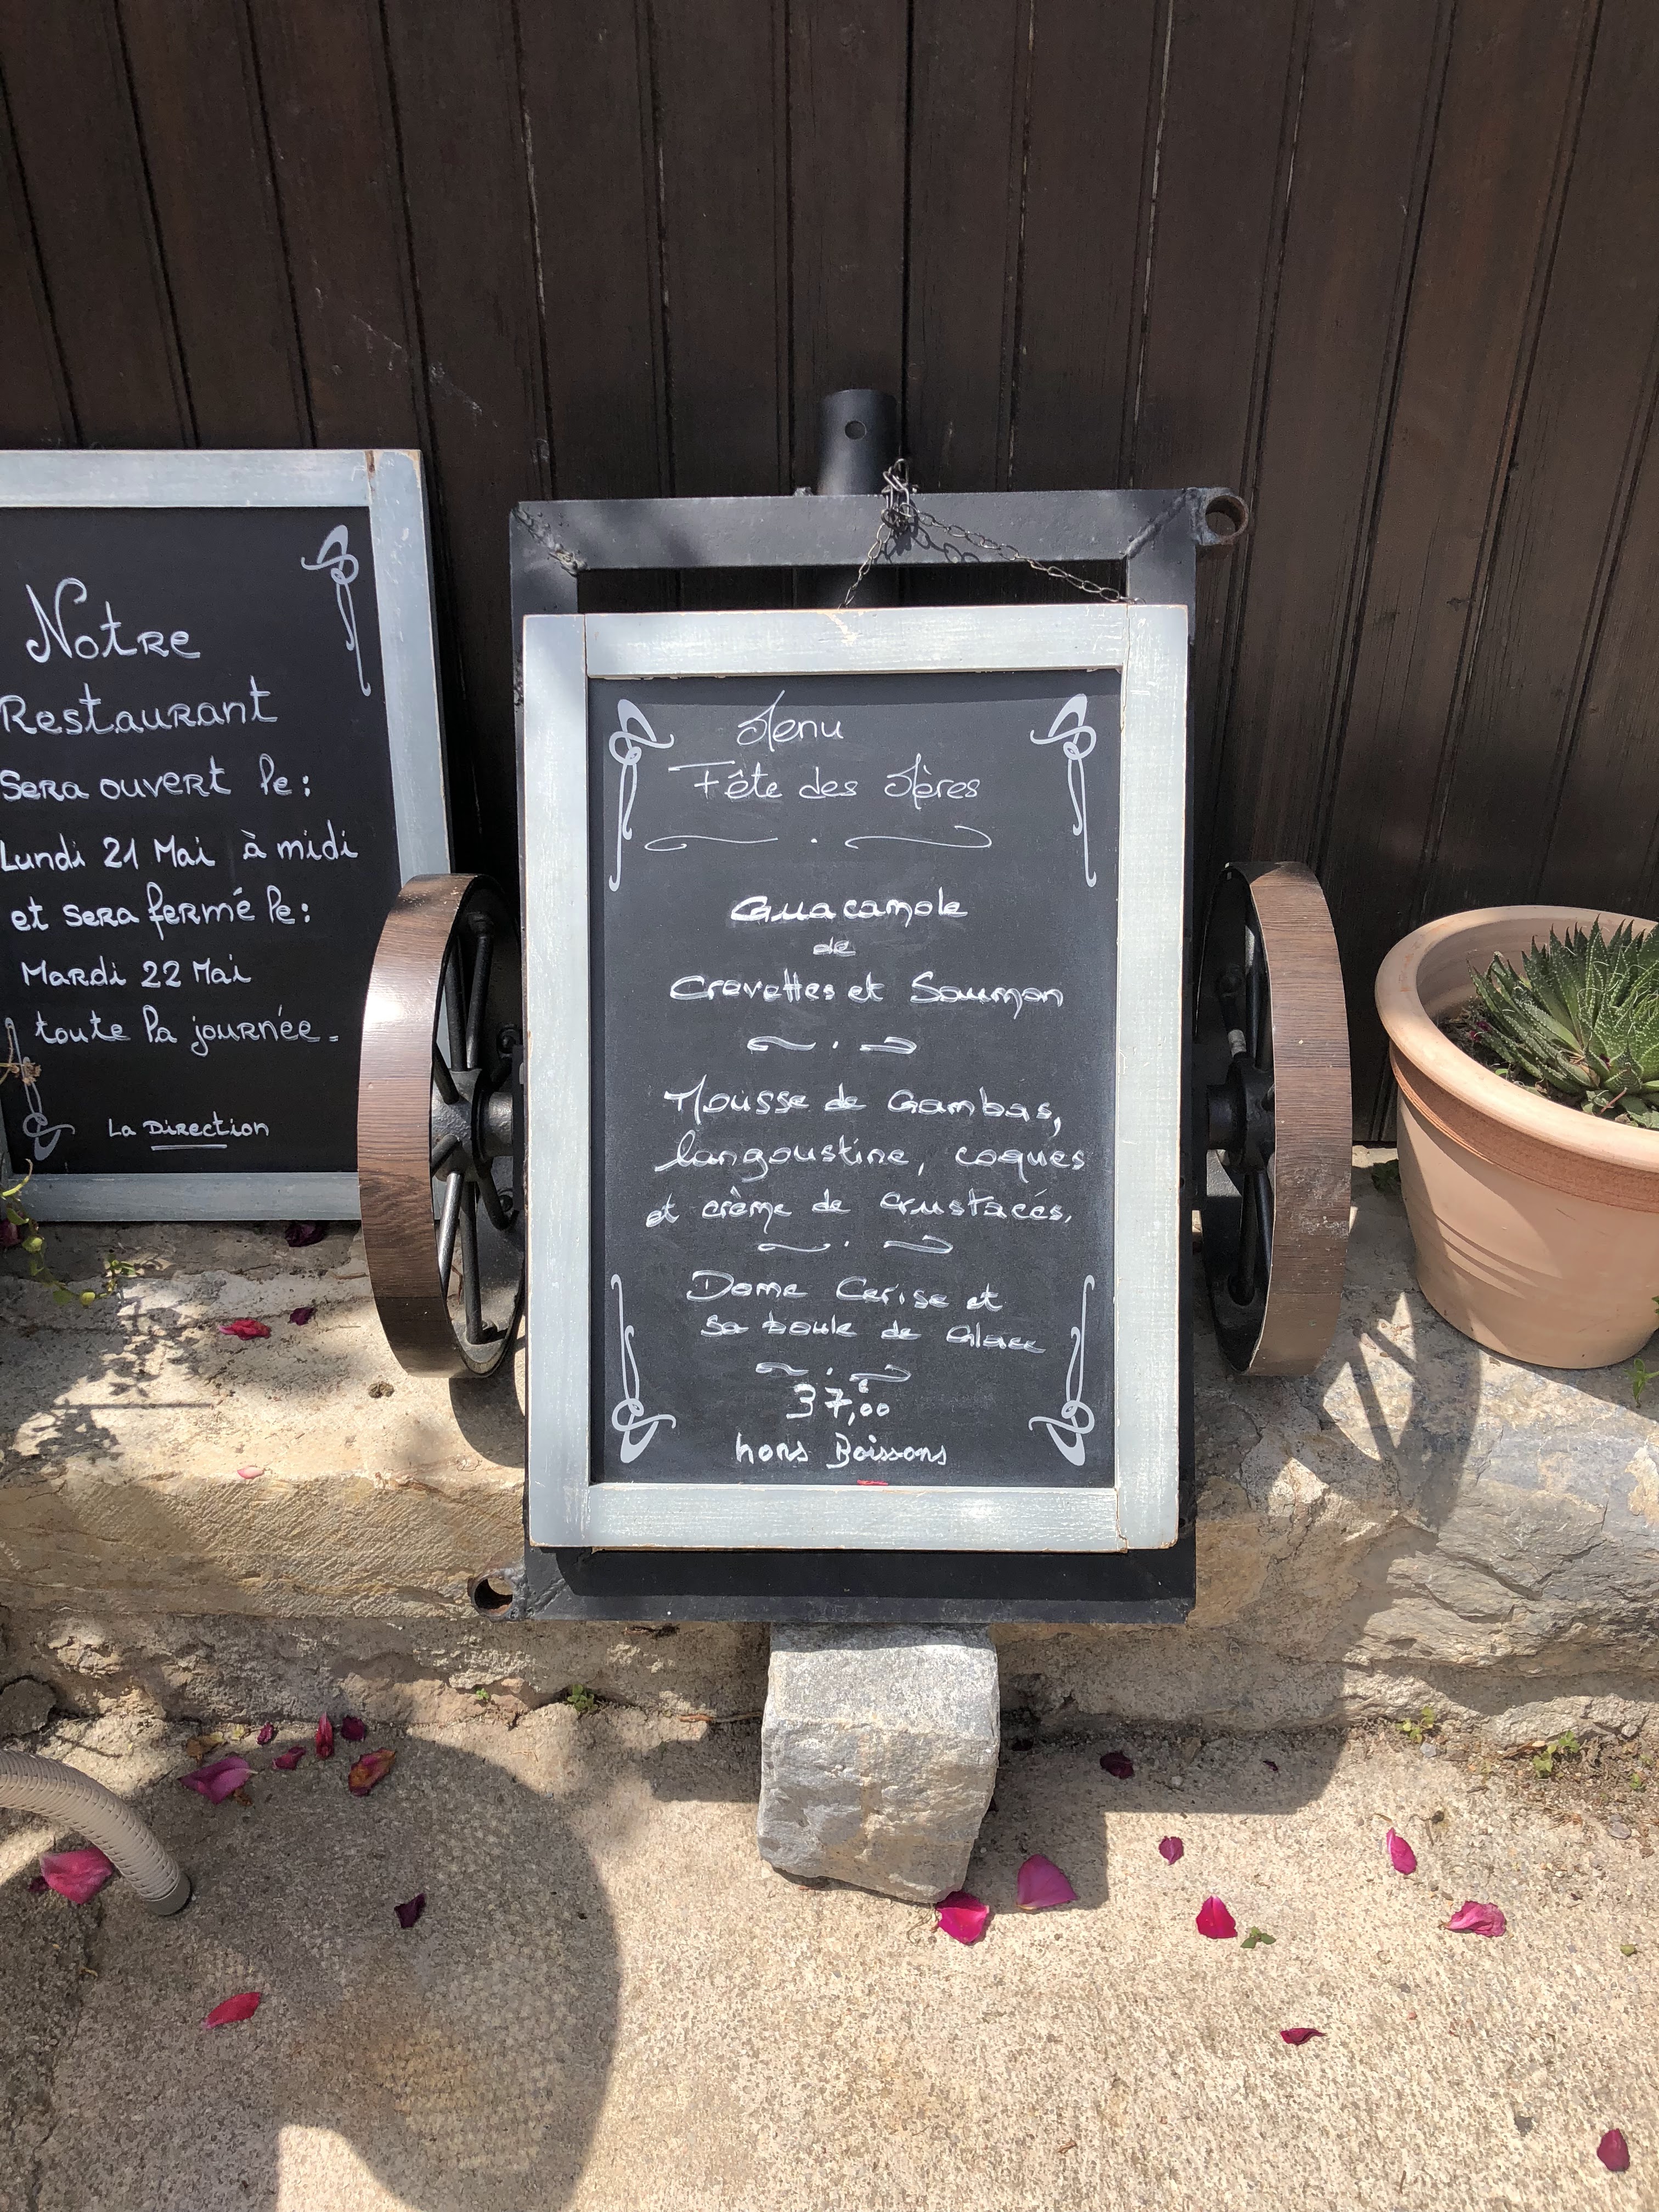 Notre
Restaurant
sera ouvert le :
Lundi 21 Mai à midi
et sera fermé le :
Mardi 22 Mai
toute la journée.
La Direction
Menu
Fête des Mères
Guacamole
de
Crevettes et Saumon
Mousse de Gambas,
langoustine, coques
et crème de crustacés.
Dome Cerise et
sa boule de Glace
37,00
hors Boissons